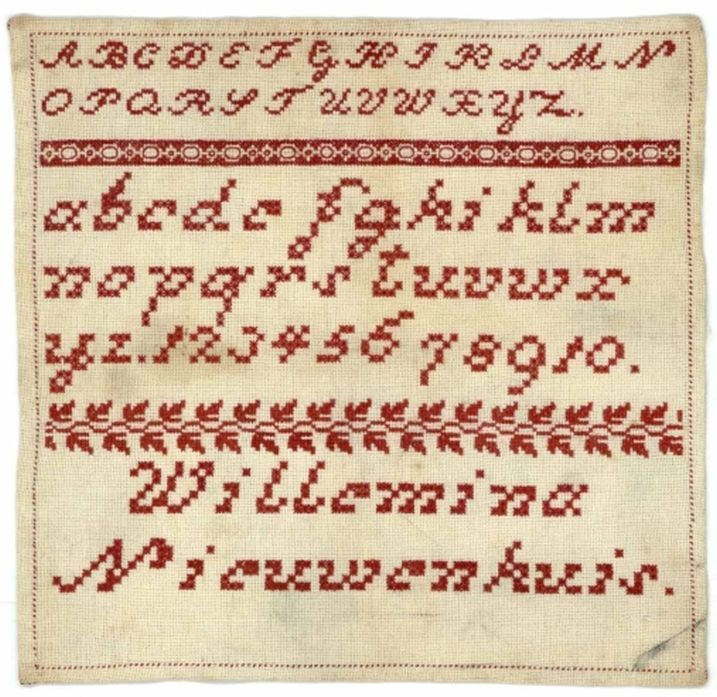 A B C D E F G H I K L M N
O P Q R S T U V W X Y Z.
a b c d e f g h i k l m
n o p q r s t u v w x
y z. 1 2 3 4 5 6 7 8 9 10.
Willemina
Nieuwenhuis.